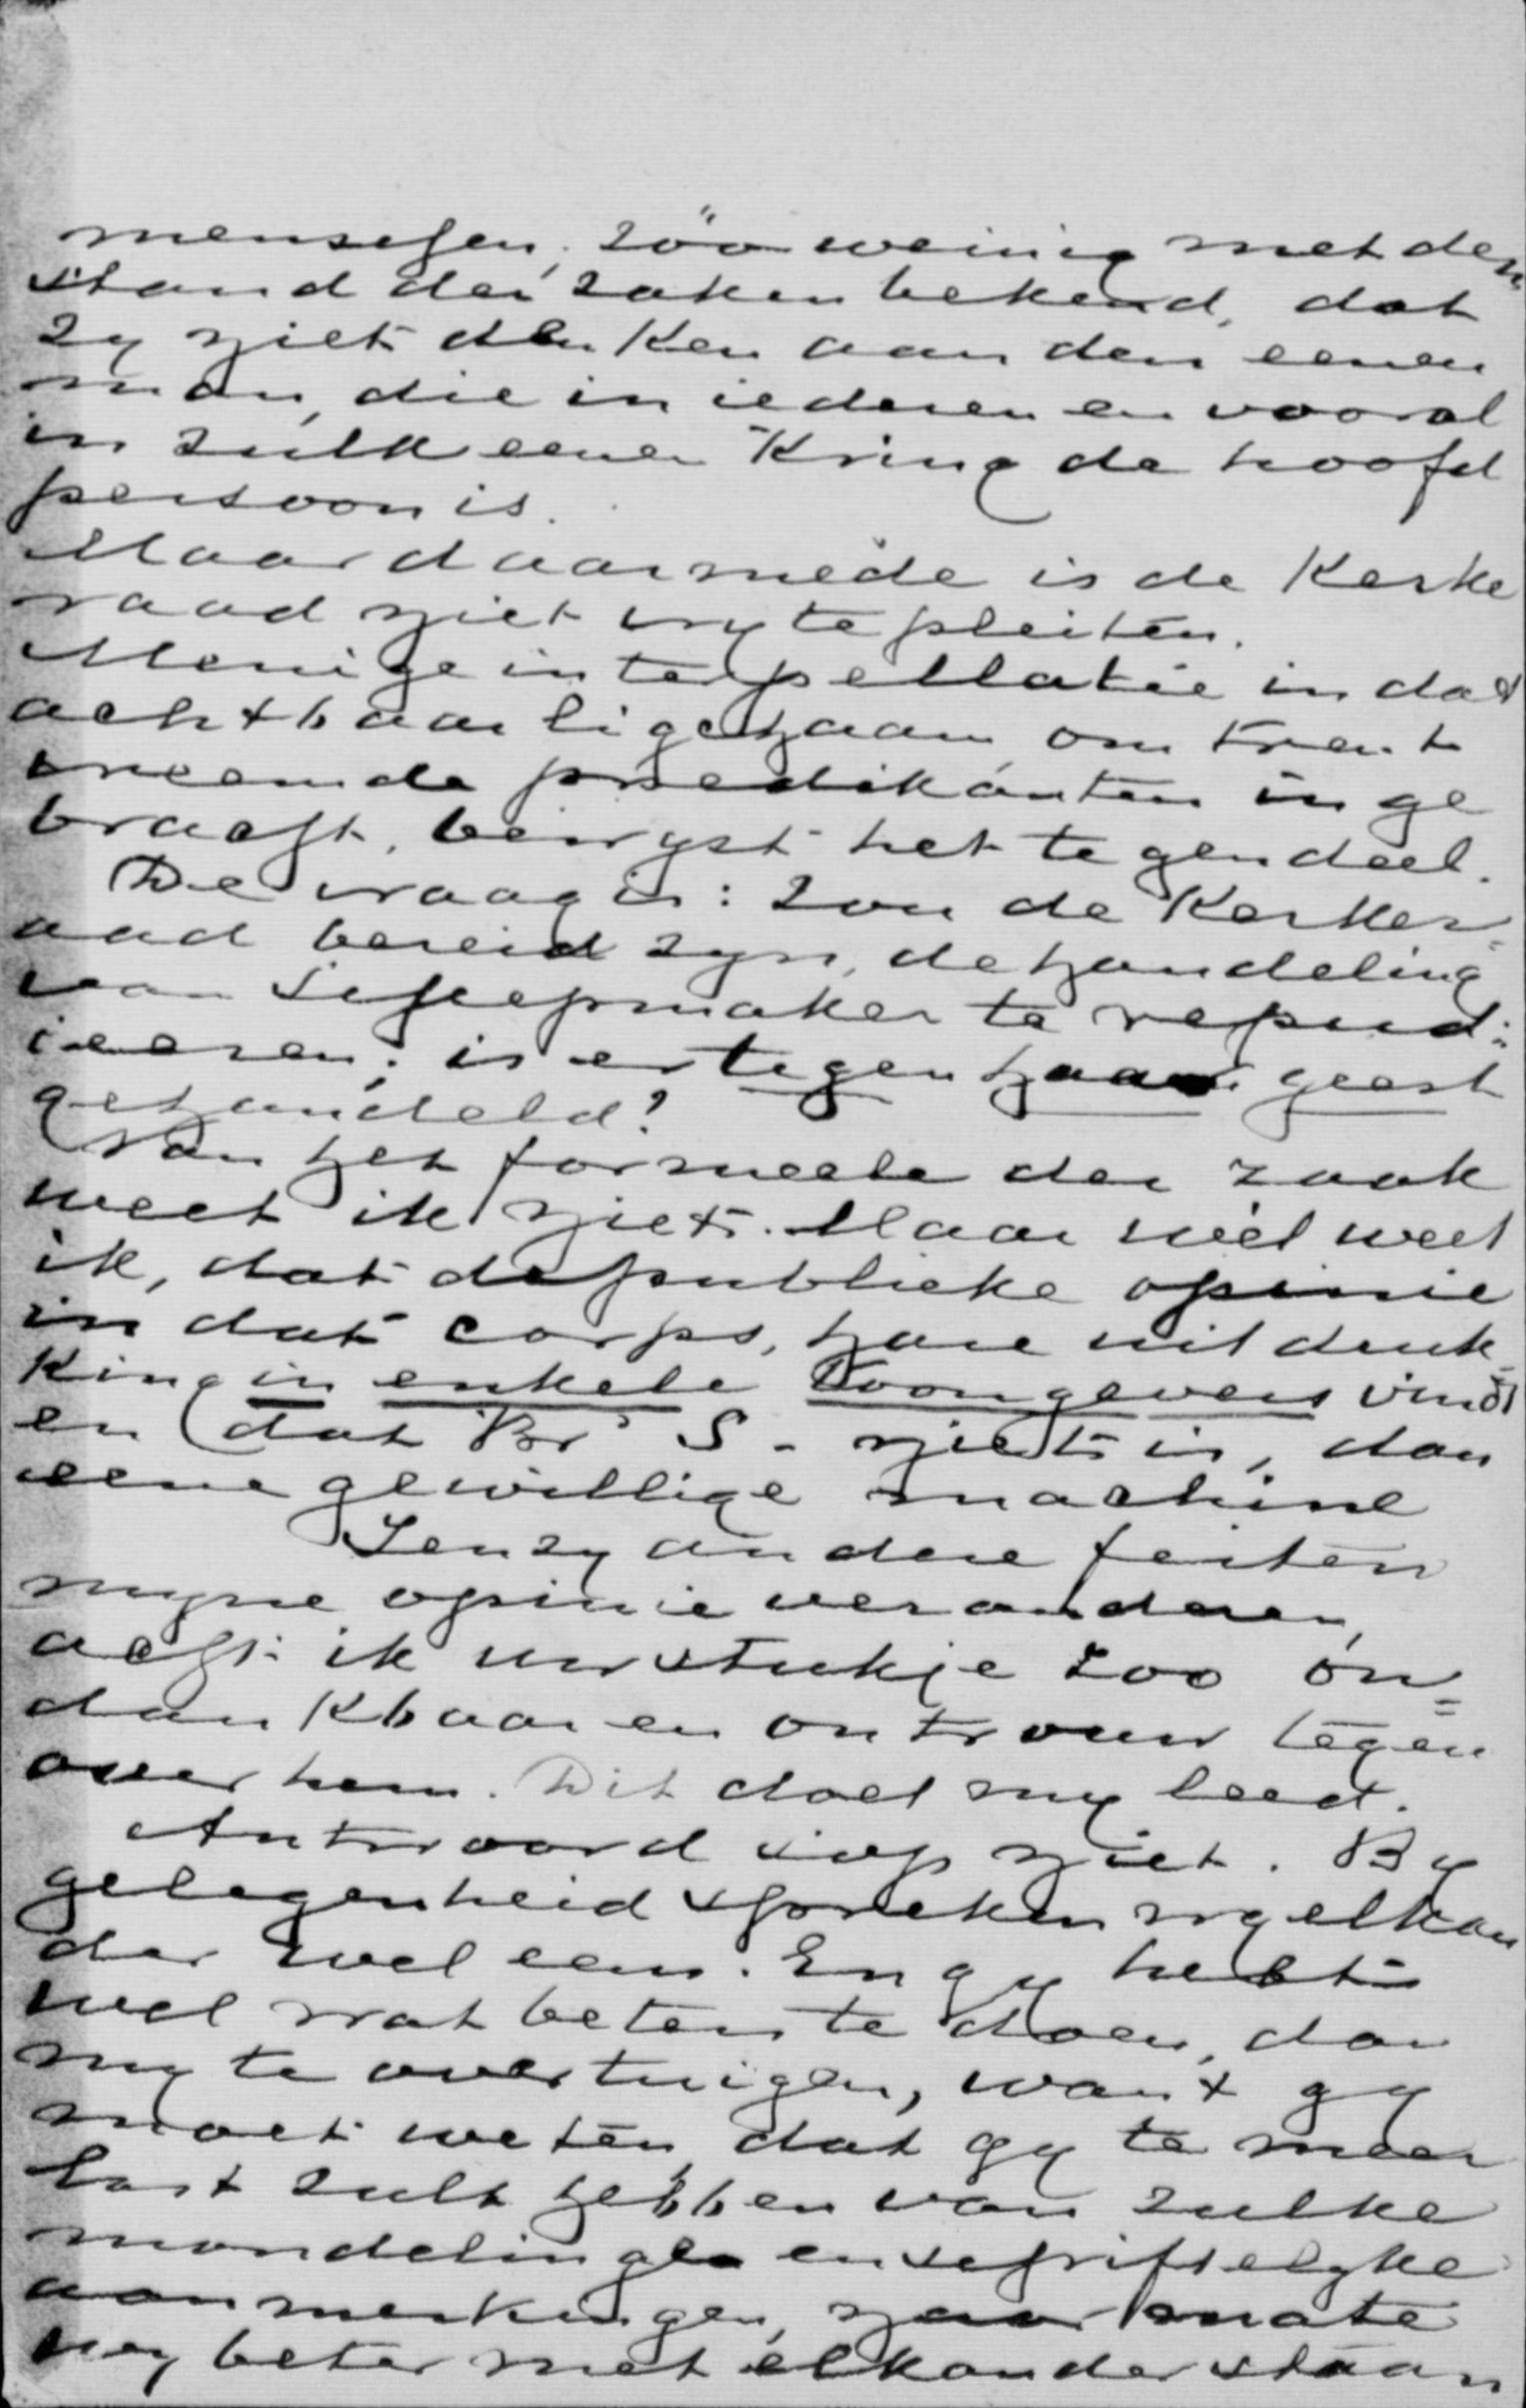 menschen, zóó weinig met den
stand der zaken bekend, dat
zy niet denken aan den eenen
man, die in iederen en vooral
in zulk eenen Kring de hoofd
persoon is.
Maar daarmede is de Kerke
raad niet vry te pleiten.
Menige interpellatie in dat
achtbaar ligchaam omtrent
vreemde predikanten inge
bracht, bewyst het tegendeel.
De vraag is: Zou de Kerker
aad bereid zyn, de handeling
van Scheepmaker te repud:
ieeren; is er tegen haar geest
gehandeld?
Van het formeele der zaak
weet ik niets. Maar wèl weet
ik, dat de publieke opinie
in dat corps, hare uitdruk
King in enkele Toongevers vindt
en dat Br S. niets is, dan
eene gewillige machine
Tenzy andere feiten
myne opinie veranderen,
acht ik uw stukje zoo on=
dankbaar en ontrouw tegen
over hem. Dit doet my leed.
Antwoord s'op niet. By
gelegenheid spreken wy elkan
der wel eens. En gy hebt
wel wat beters te doen, dan
my te overtuigen, want gy
moet weten dat gy te meer
last zult hebben van zulke
mondelinge en schriftelyke
aanmerkingen, naar mate
wy beter met elkander staan